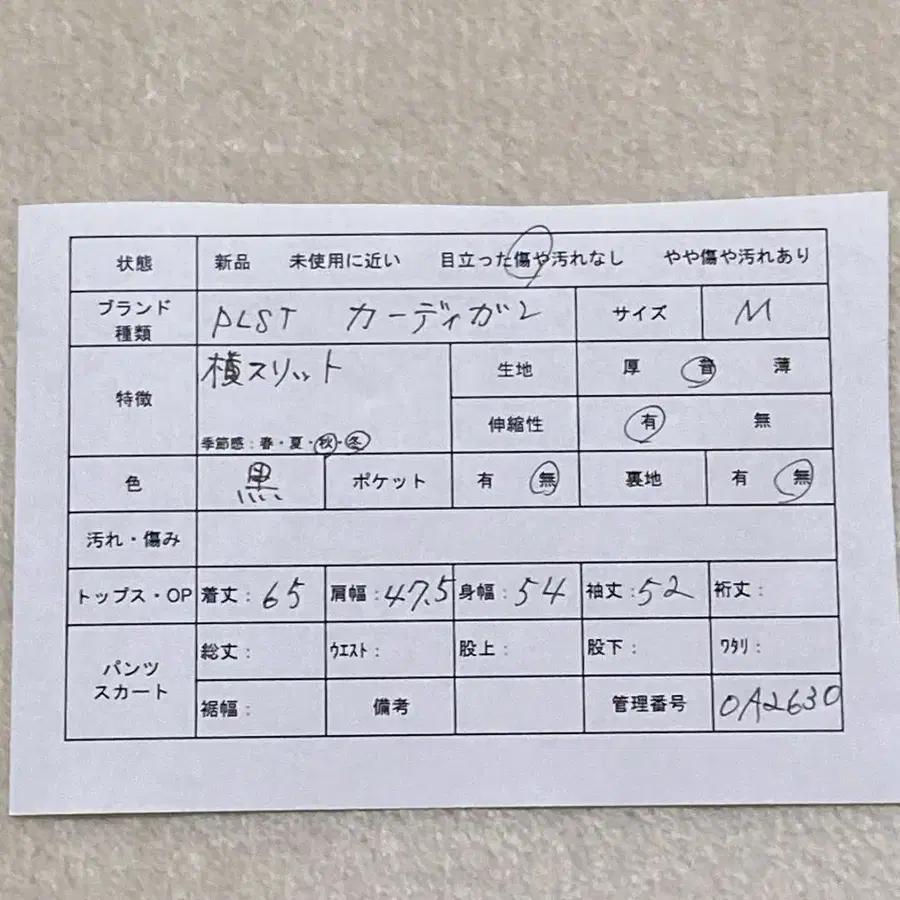 状態 新品 未使用に近い 目立った傷や汚れなし やや傷や汚れあり
ブランド 種類 PLST カーディガン サイズ M
特徴 横スリット 生地 厚 普 薄
季節感：春・夏・秋・冬 伸縮性 有 無
色 黒 ポケット 有 無 裏地 有 無
汚れ・傷み
トップス・OP 着丈：65 肩幅：47.5 身幅：54 袖丈：52 裄丈：
パンツ スカート 総丈： ウエスト： 股上： 股下： ワタリ：
裾幅： 備考 管理番号 0A2630